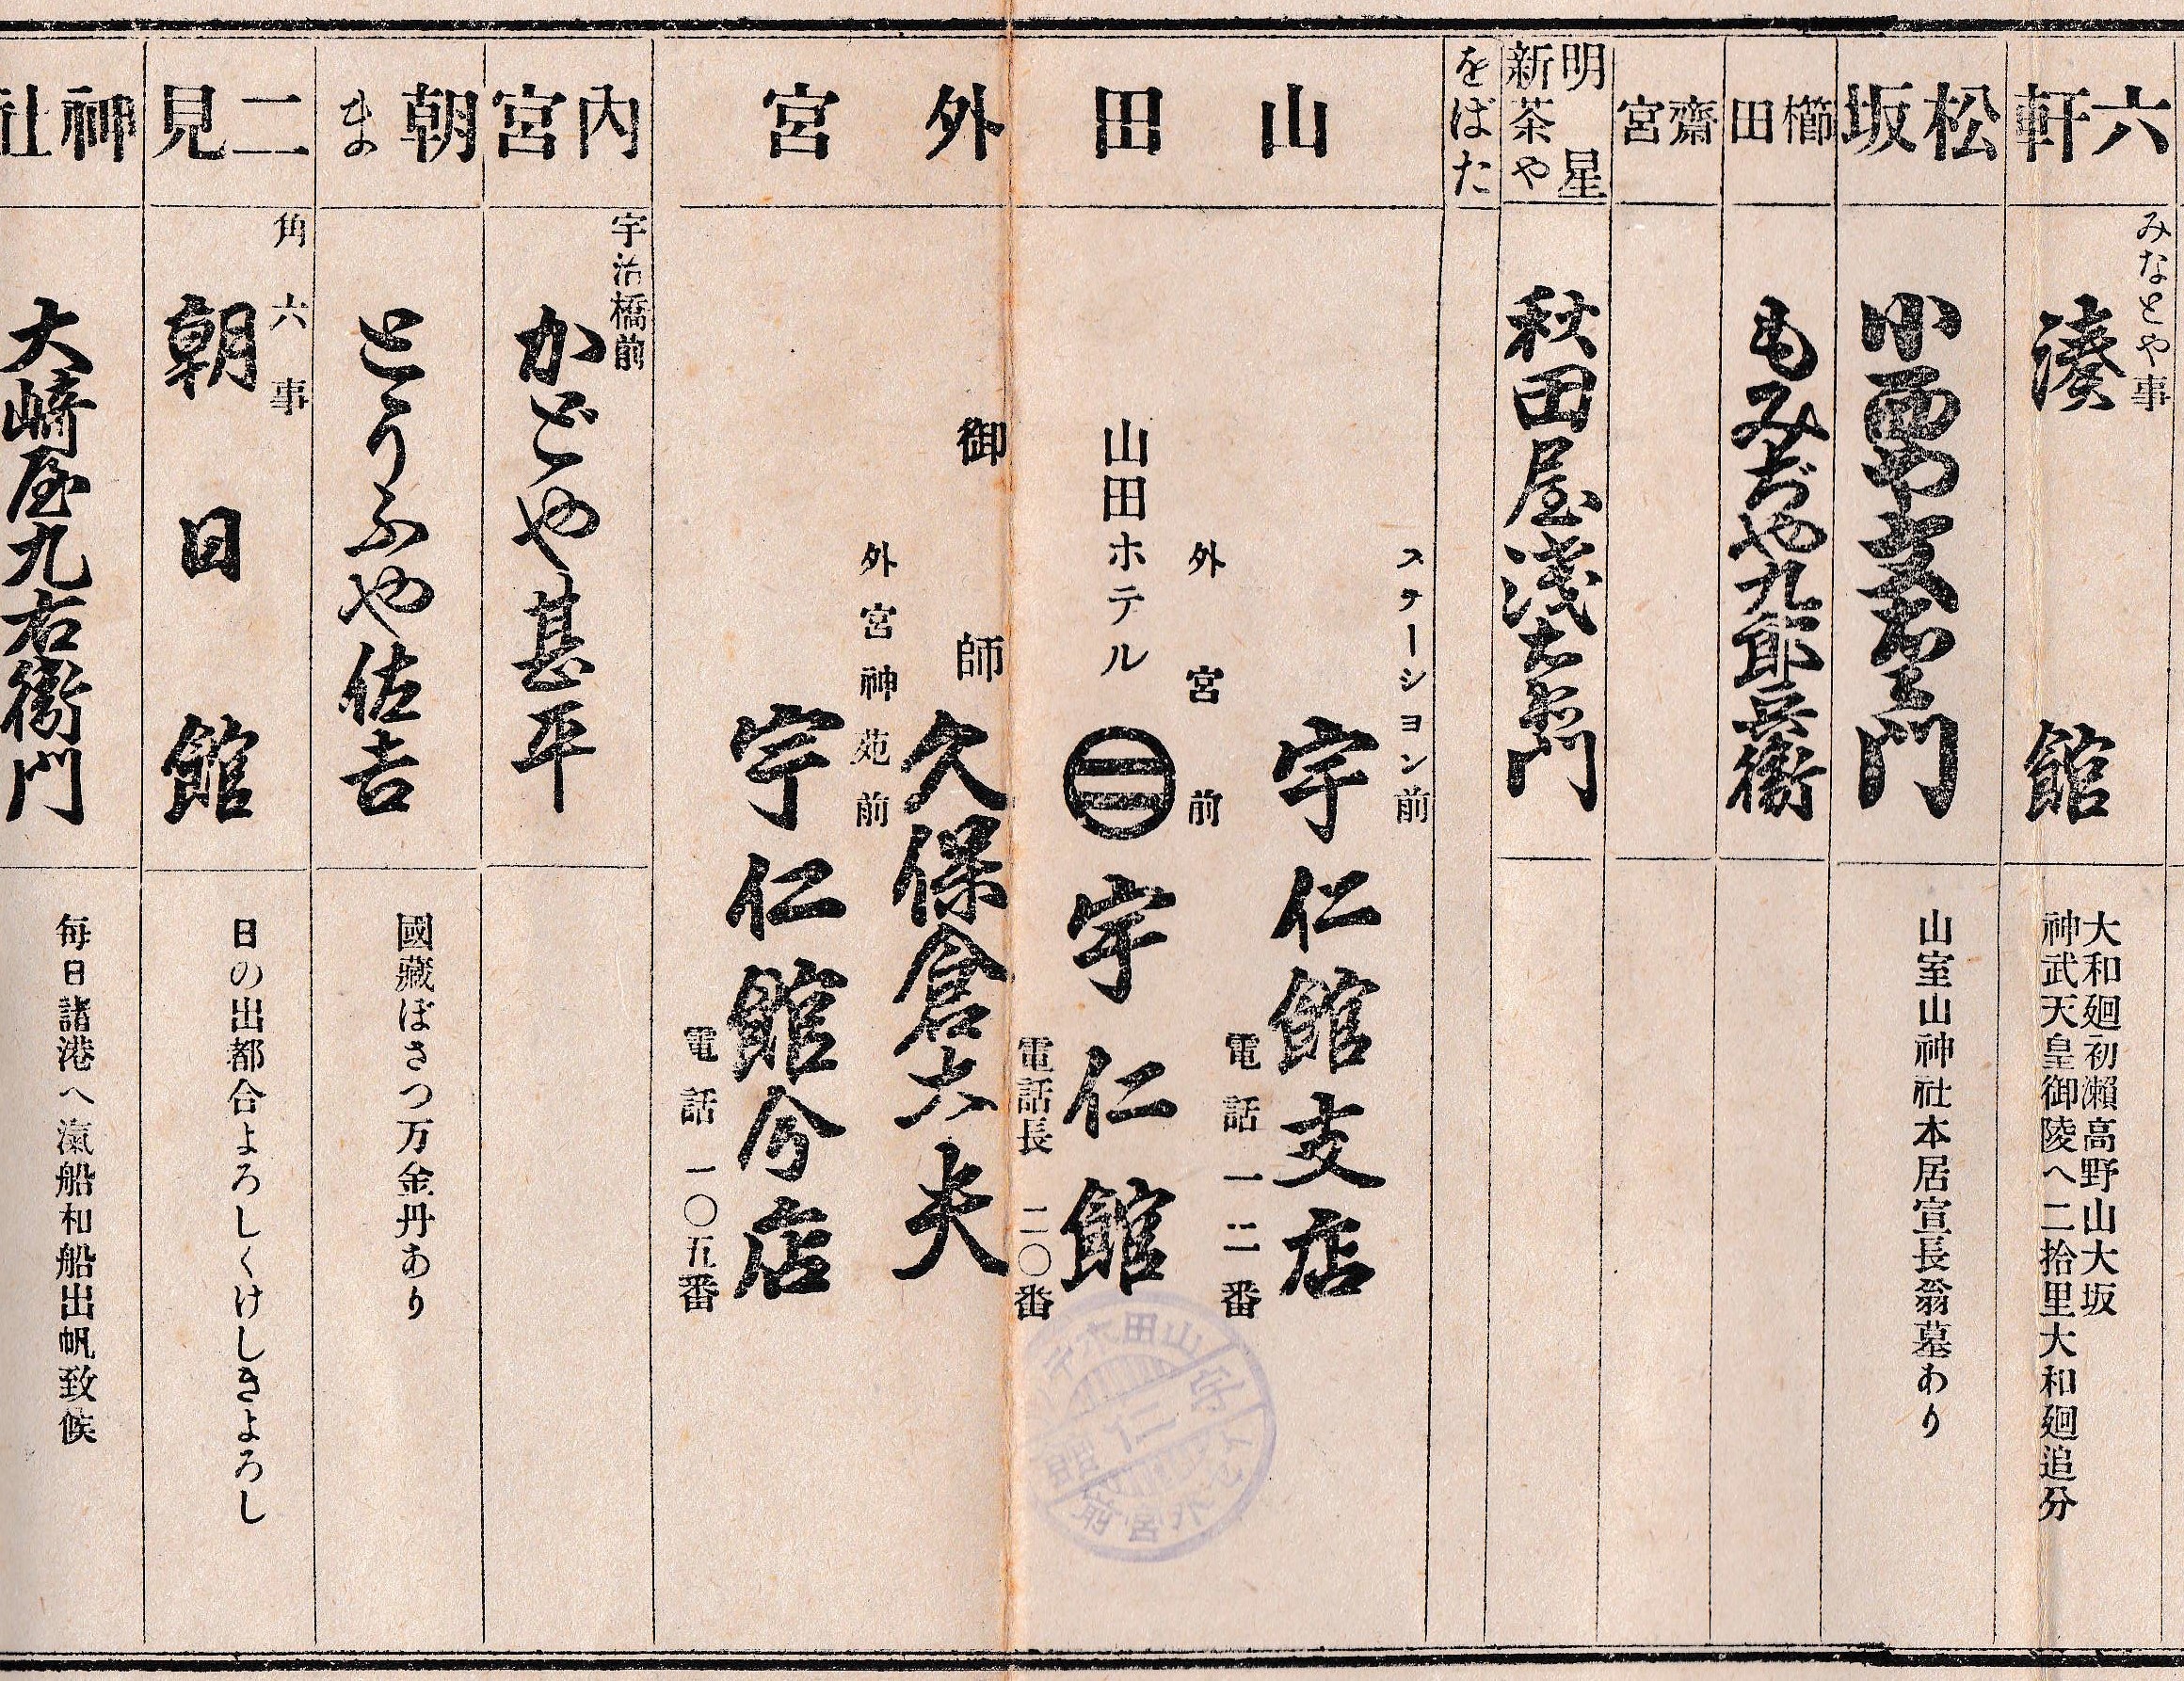 六軒
みなとや事
湊館
大和廻初瀬高野山大坂
神武天皇御陵へ二拾里大和廻追分
松坂
山室山神社本居宣長翁墓あり
櫛田
もみぢや九郎兵衛
齋宮
明星
新茶や
秋田屋浅右衛門
をばた
山田外宮
ステーション前
宇仁館支店
電話一二番
外宮前
山田ホテル
㊂宇仁館
電話長二〇番
御師
久保倉太夫
外宮神苑前
宇仁館今店
電話一〇五番
内宮
宇治橋前
かどや甚平
朝ま
とうふや佐吉
國藏ぼさつ万金丹あり
二見
角六事
朝日館
日の出都合よろしくけしきよろし
神社
大崎屋九右衛門
毎日諸港へ滊船和船出帆致候
山田ホテ
宇仁館
外宮前